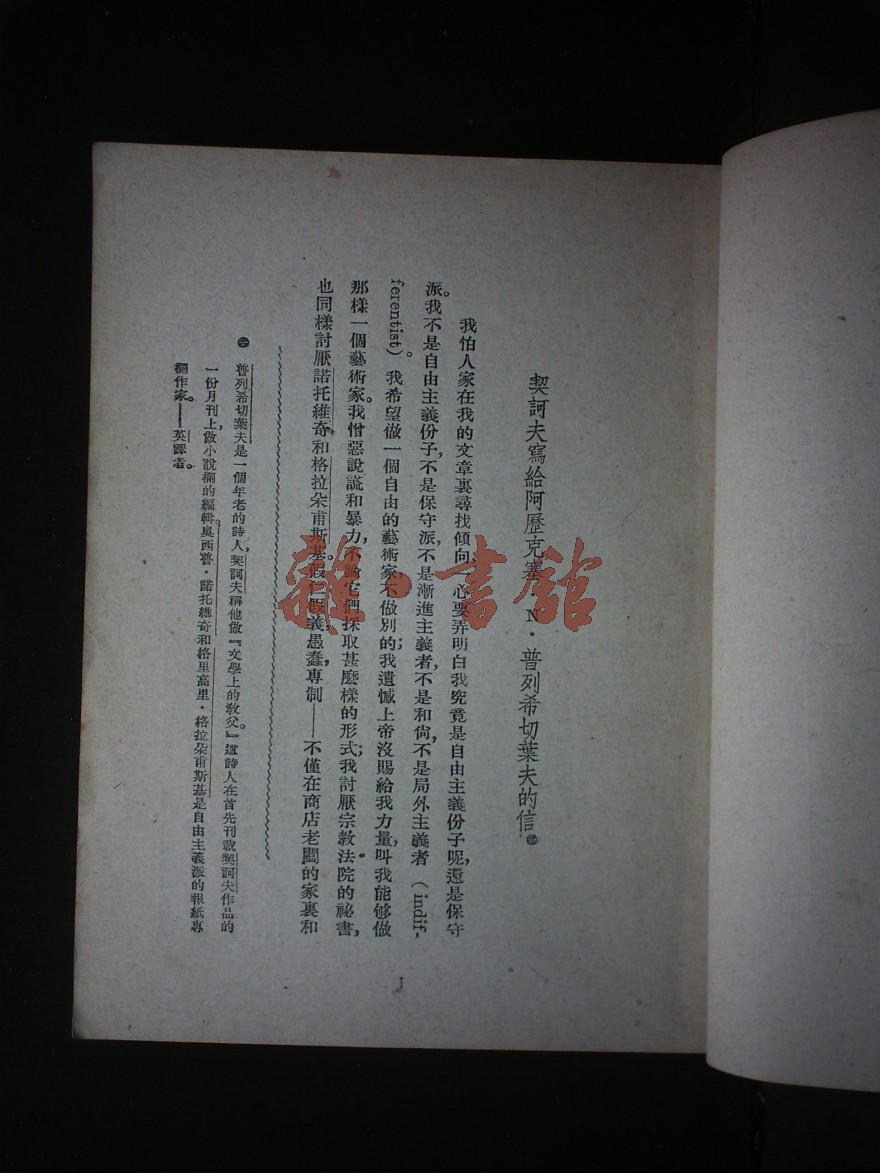 契訶夫寫給阿歷克塞・N・普列希切葉夫的信㊀
我怕人家在我的文章裏尋找傾向一心要弄明白我究竟是自由主義份子呢，還是保守
派。我不是自由主義份子，不是保守派，不是漸進主義者，不是和尙，不是局外主義者（indif-
ferentist）。我希望做一個自由的藝術家，不做別的；我遺憾上帝沒賜給我力量，叫我能够做
那樣一個藝術家。我憎惡說謊和暴力，不論它們採取甚麼樣的形式；我討厭宗教法院的祕書，
也同樣討厭諾托維奇和格拉朵甫斯基。假仁假義，愚蠢，專制——不僅在商店老闆的家裏和
㊀ 普列希切葉夫是一個年老的詩人，契訶夫稱他做『文學上的敎父。』這詩人在首先刊載契訶夫作品的
一份月刊上做小說欄的編輯。奧西普・諾托維奇和格里高里・格拉朵甫斯基是自由主義派的報紙專
欄作家。——英譯者。
1
雜・書館